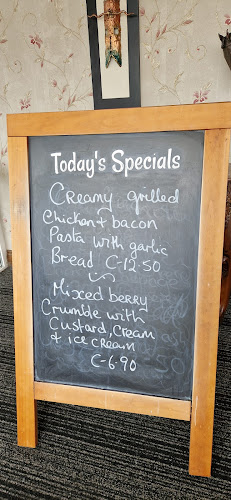 Today's Specials
Creamy grilled
Chicken + bacon
Pasta with garlic
Bread £-12.50
Mixed berry
Crumble with
Custard, Cream
+ ice cream
£-6.90